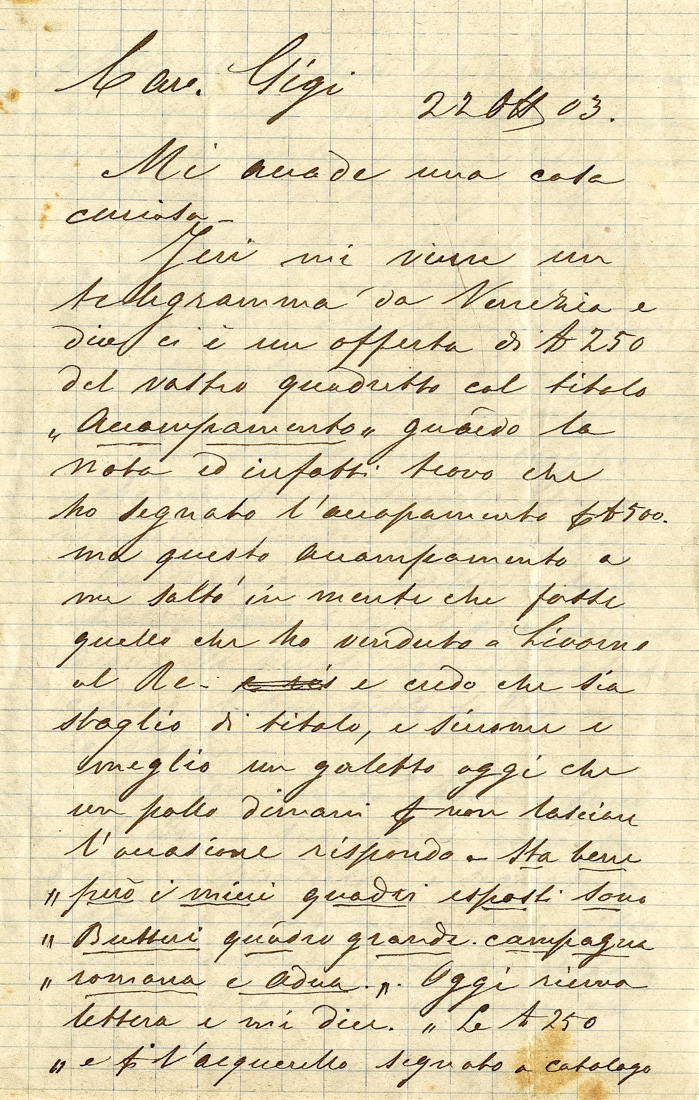 Caro. Gigi
22 Ott 03.
Mi accade una cosa
curiosa -
Jeri mi viene un
telegramma da Venezia e
dice, ci è un offerta di £ 250
del vostro quadretto col titolo
„ Accampamento „ guardo la
nota ed infatti trovo che
ho segnato l'accapamento £ 500.
ma questo accampamento a
me saltò in mente che fosse
quello che ho venduto a Livorno
al Re - e credo che sia
sbaglio di titolo, e siccome e
meglio un galetto oggi che
un pollo dimani non lasciai
l'occasione rispondo - Sta bene
„ però i miei quadri esposti sono
„ Butteri quadro grande. campagna
„ romana e Adua. „. Oggi ricevo
lettera e mi dice. „ Le £ 250
„ e l'acquerello segnato a catalogo